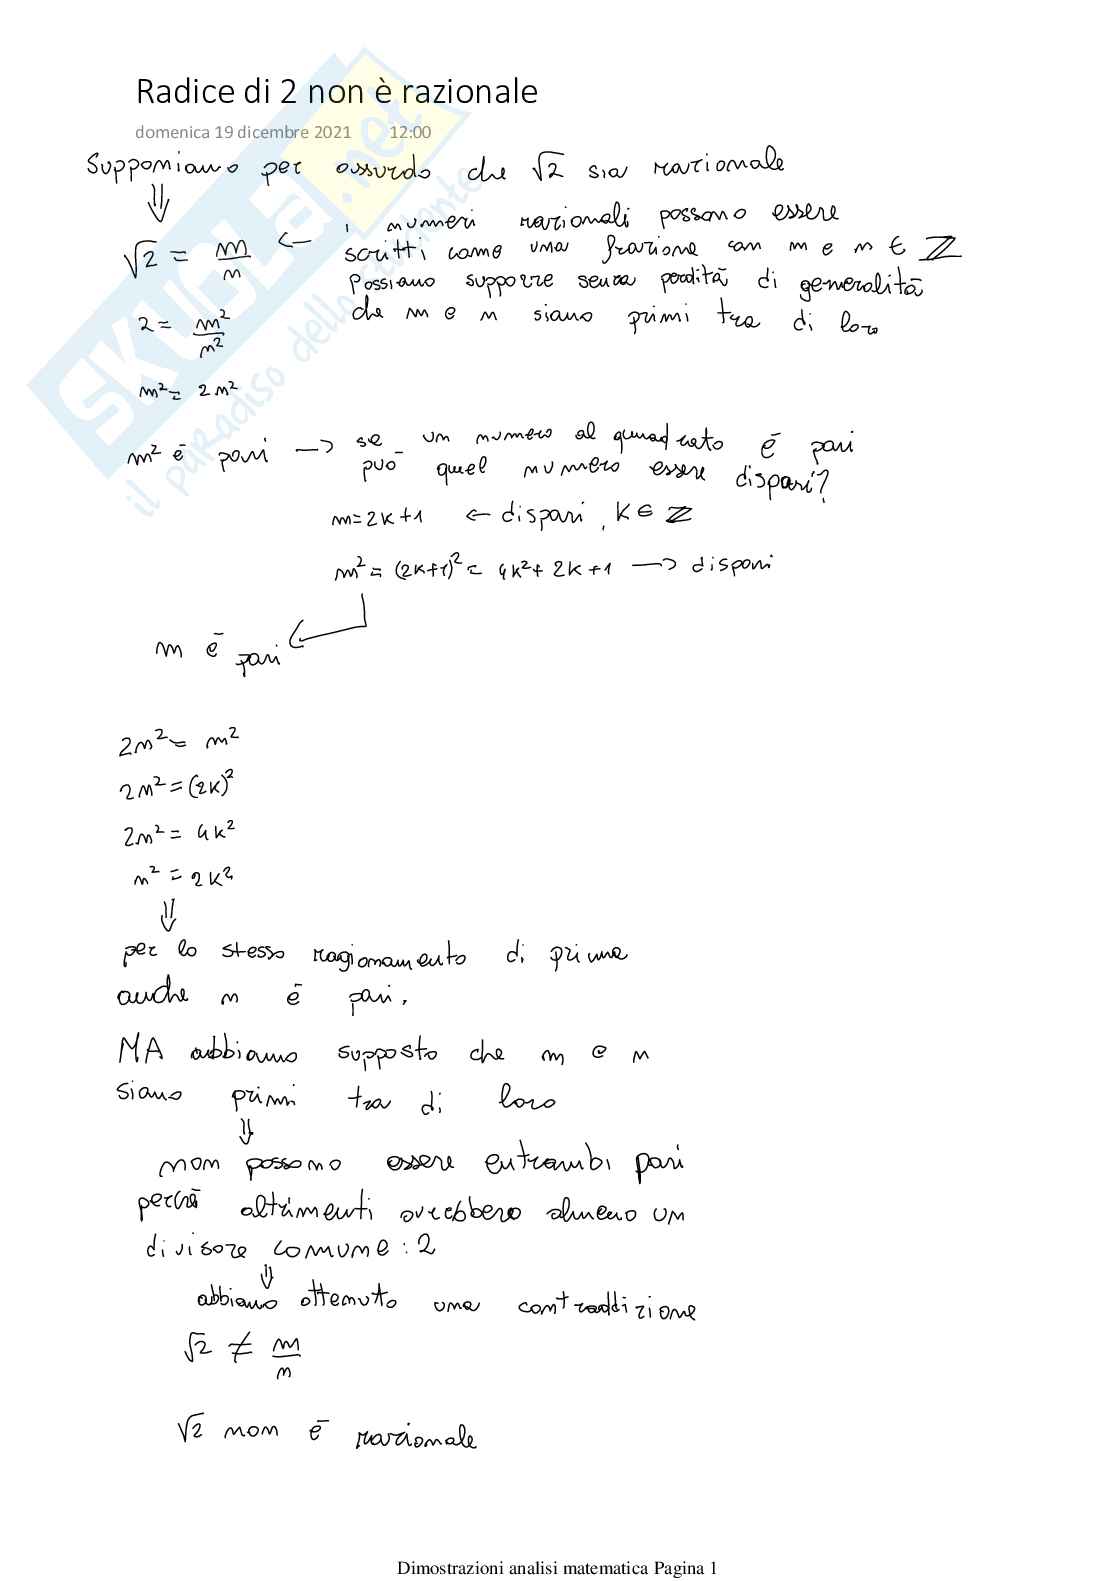 Radice di 2 non è razionale
domenica 19 dicembre 2021 12:00
SKUOLA.net
il paradiso dello studente
Supponiamo per assurdo che √2 sia razionale
⇓
√2 = m/n ← i numeri razionali possono essere
scritti come una frazione con m e n ∈ ℤ
Possiamo supporre senza perdità di generalità
che m e n siano primi tra di loro
2 = m²/n²
m² = 2n²
m² è pari → se un numero al quadrato è pari
può quel numero essere dispari?
m = 2k+1 ← dispari, k ∈ ℤ
m² = (2k+1)² = 4k² + 2k + 1 → dispari
m è pari
2n² = m²
2n² = (2k)²
2n² = 4k²
n² = 2k²
⇓
per lo stesso ragionamento di prima
anche n è pari.
MA abbiamo supposto che m e n
siano primi tra di loro
⇓
non possono essere entrambi pari
perchè altrimenti avrebbero almeno un
divisore comune: 2
⇓
abbiamo ottenuto una contraddizione
√2 ≠ m/n
√2 non è razionale
Dimostrazioni analisi matematica Pagina 1